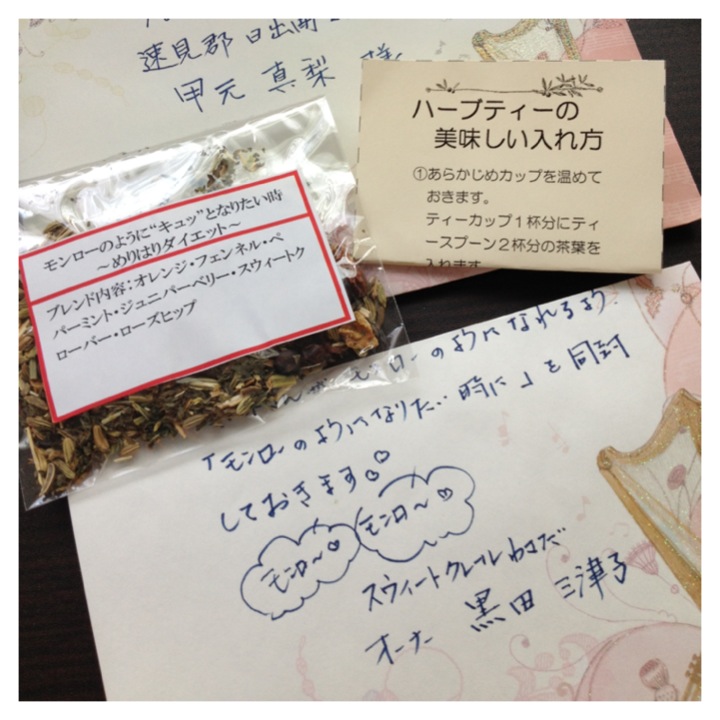 速見郡日出町
甲元 真梨 様
ハーブティーの
美味しい入れ方
①あらかじめカップを温めて
おきます。
ティーカップ1杯分にティ
ースプーン2杯分の茶葉を
入れます
モンローのように“キュッ”となりたい時
～めりはりダイエット～
ブレンド内容:オレンジ・フェンネル・ペ
パーミント・ジュニパーベリー・スウィートク
ローバー・ローズヒップ
ローのようになれるよう
「モンローのようになりたい時に」を同封
しておきます♡♡
モンロ〜♡ モンロ〜♡
スウィートクレール わさだ
オーナー 黒田 三津子